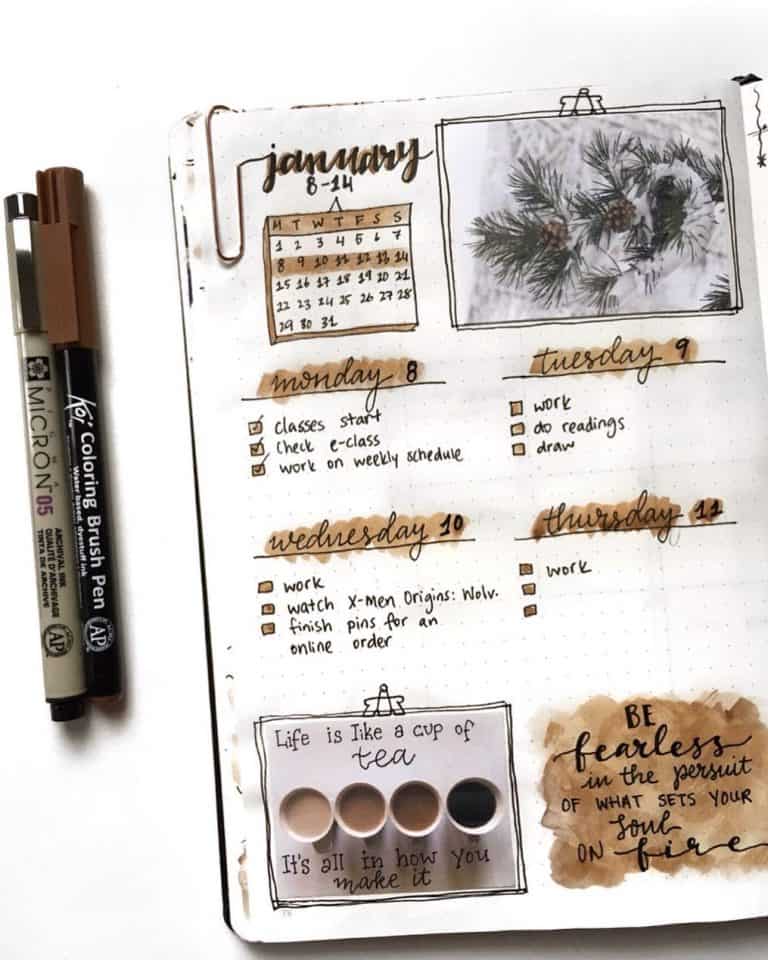 january
8-14
M T W T F S S
1 2 3 4 5 6 7
8 9 10 11 12 13 14
15 16 17 18 19 20 21
22 23 24 25 26 27 28
29 30 31
monday 8
classes start
check e-class
work on weekly schedule
tuesday 9
work
do readings
draw
wednesday 10
work
watch X-Men Origins: Wolv.
finish pins for an
online order
thursday 11
work
Life is like a cup of
tea
It's all in how you
make it
BE
fearless
in the persuit
OF WHAT SETS YOUR
Soul
ON fire
MICRON 05
ARCHIVAL INK
QUALITÉ D'ARCHIVAGE
TINTA DE ARCHIVE
AP
Koi Coloring Brush Pen
Water based, dyestuff ink
AP